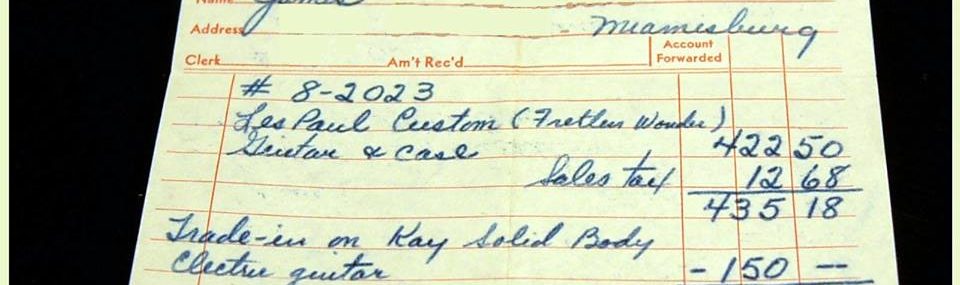 Name James
Address Miamisburg
Clerk Am't Rec'd Account Forwarded
# 8-2023
Les Paul Custom (Fretless Wonder)
Guitar & Case 422 50
Sales tax 12 68
435 18
Trade-in on Kay Solid Body
Electric guitar - 150 --